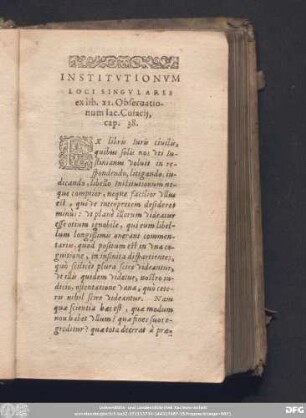 INSTITVTIONVM
LOCI SINGVLARES
ex lib. 21. Obseruatio-
num Iac. Cuiacij,
cap. 38.
EX libris iuris ciuilis,
quibus solis nos vti Iu-
stinianus voluit in re-
spondendo, litigando, iu-
dicando, libello Institutionum ne-
que comptior, neque facilior vllus
est, quíve interpretem desideret
minùs: vt planè illorum videatur
esse otium ignobile, qui eum libel-
lum longissimis onerant commen-
tariis, quod positum est in vna co-
gnitione, in infinita dispartientes,
quò scilicet plura scire videantur,
vt illis quidem videtur, nostro iu-
dicio, ostentatione vana, quò cete-
ri nihil scire videantur. Nam
quæ scientia hæc est, quæ modum
non habet vllum? quæ fines suos e-
greditur? quæ tota aberrat à præ-